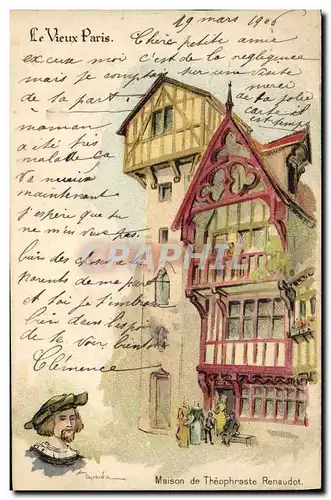 19 mars 1906
Le Vieux Paris.
Chère petite amie
excuse moi c'est de la négligence
mais je comptais sur une visite
de ta part. merci
de ta jolie
carte
maman
a été très
malade ça
va mieux
maintenant
J'espère que tu
ne m'en veux pas.
bien des choses à tes
parents de ma part
et toi je t'embrasse
bien dans l'espoir
de te voir bientôt
Clémence
CPA
Maison de Théophraste Renaudot.